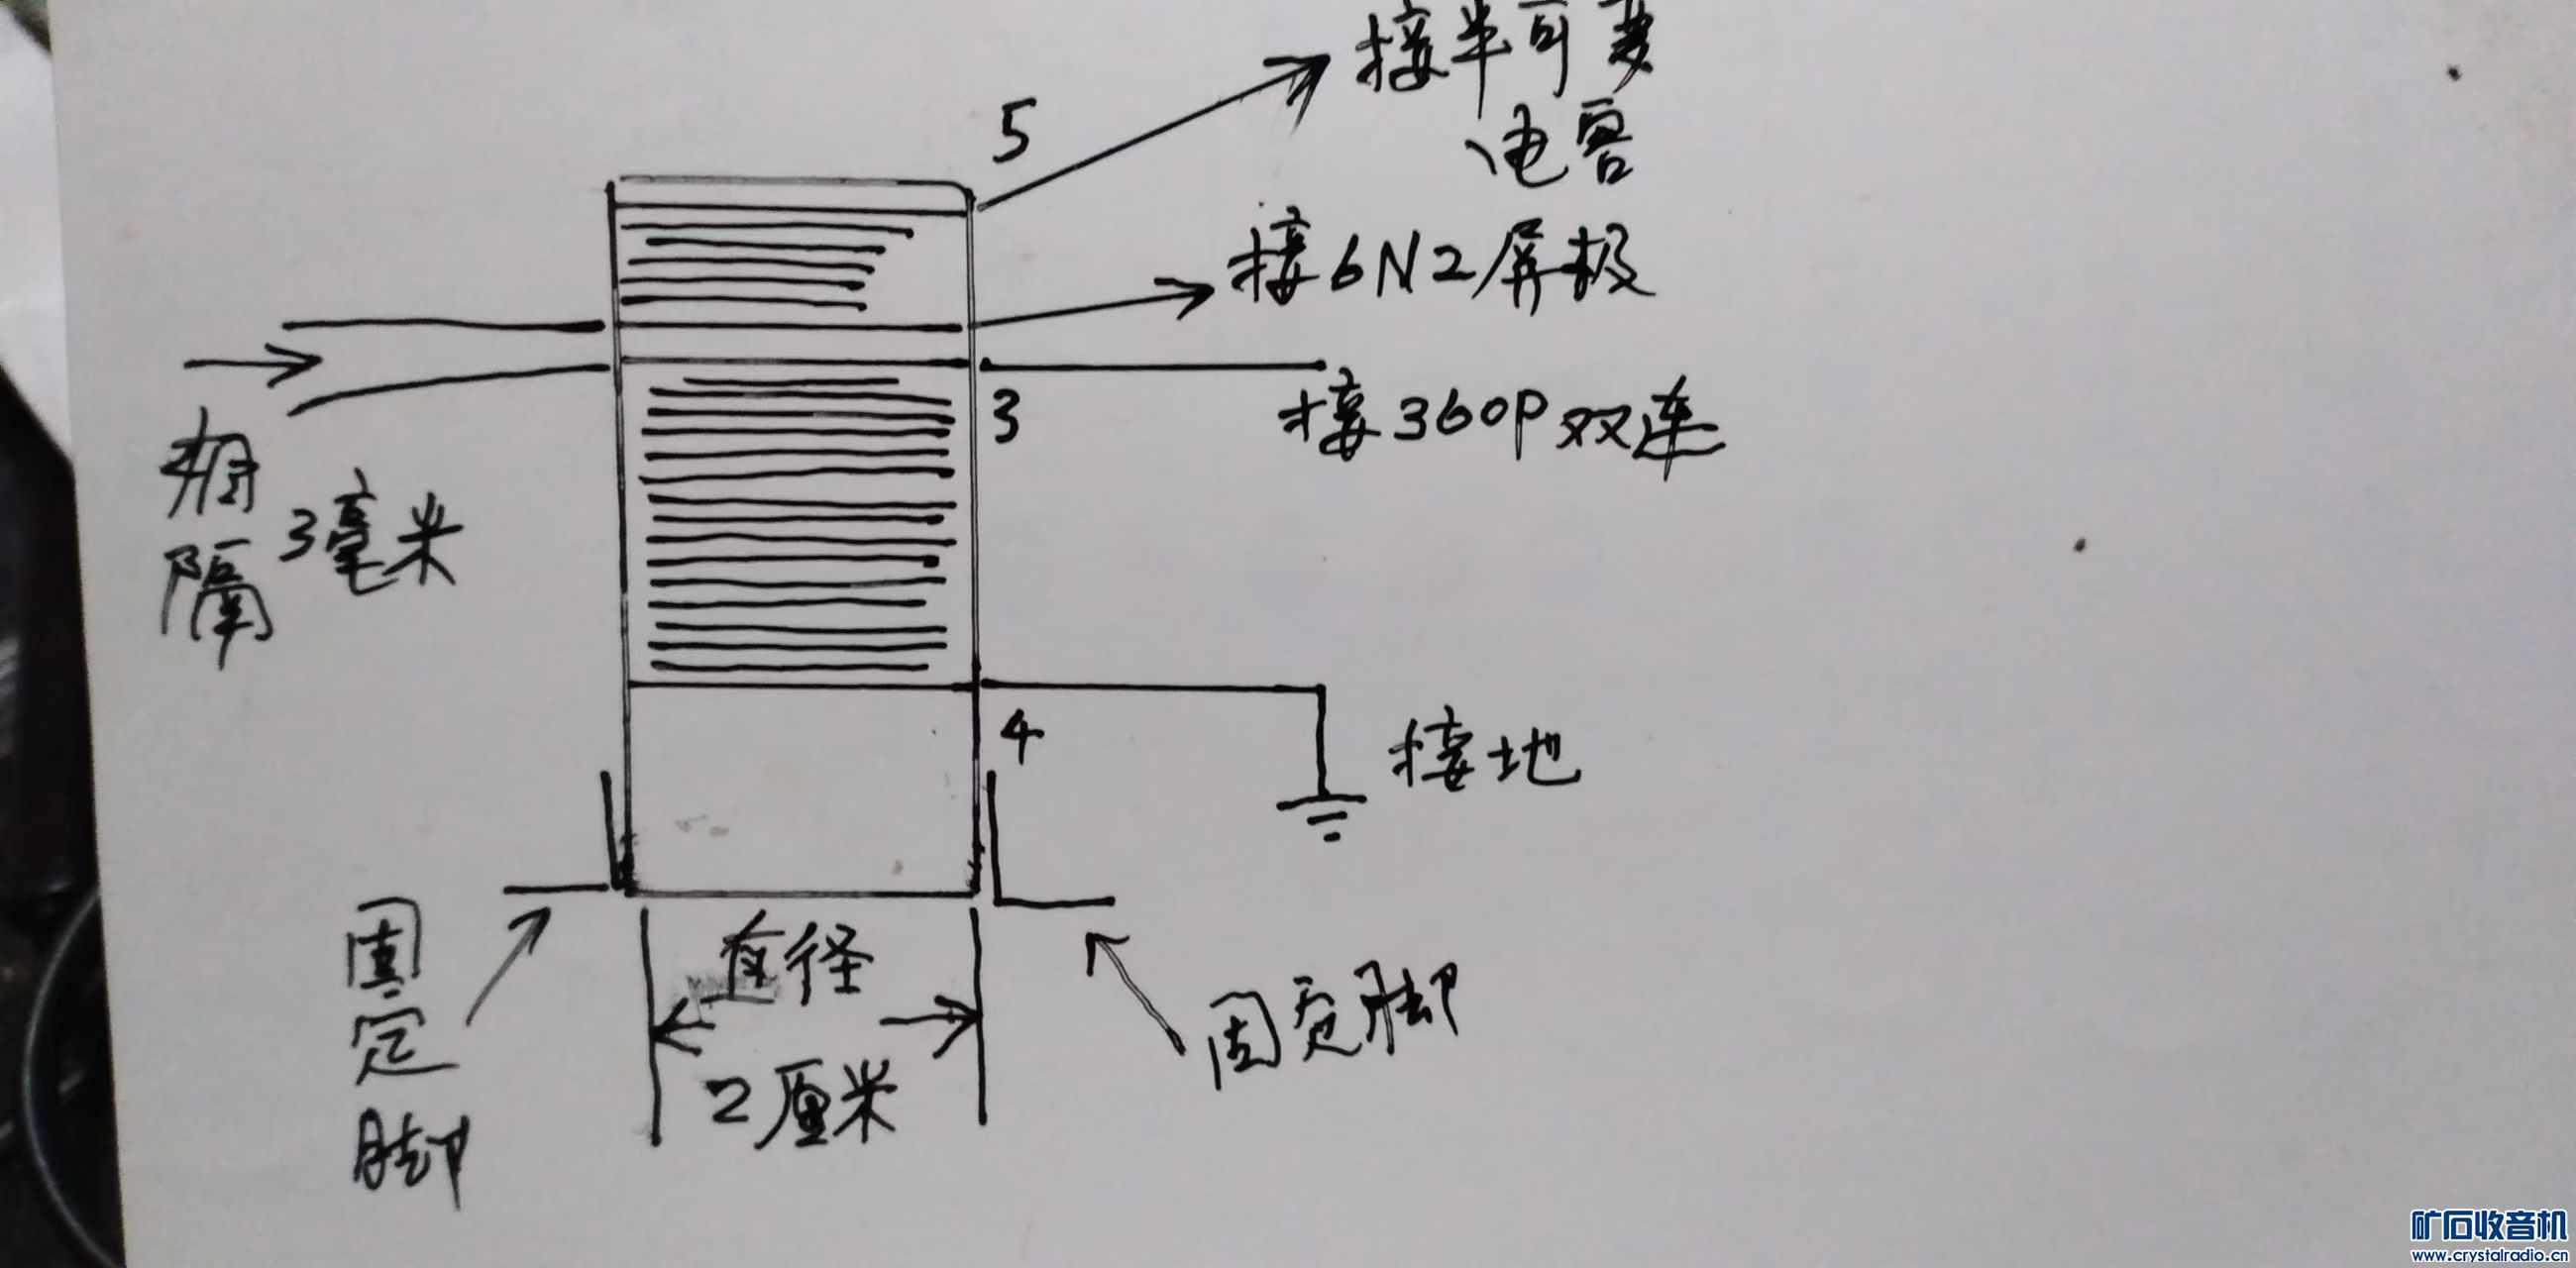 5
接半可变
电容
接6N2屏极
3
接360P双连
相隔
3毫米
4
接地
固定脚
直径
2厘米
固定脚
矿石收音机
www.crystalradio.cn